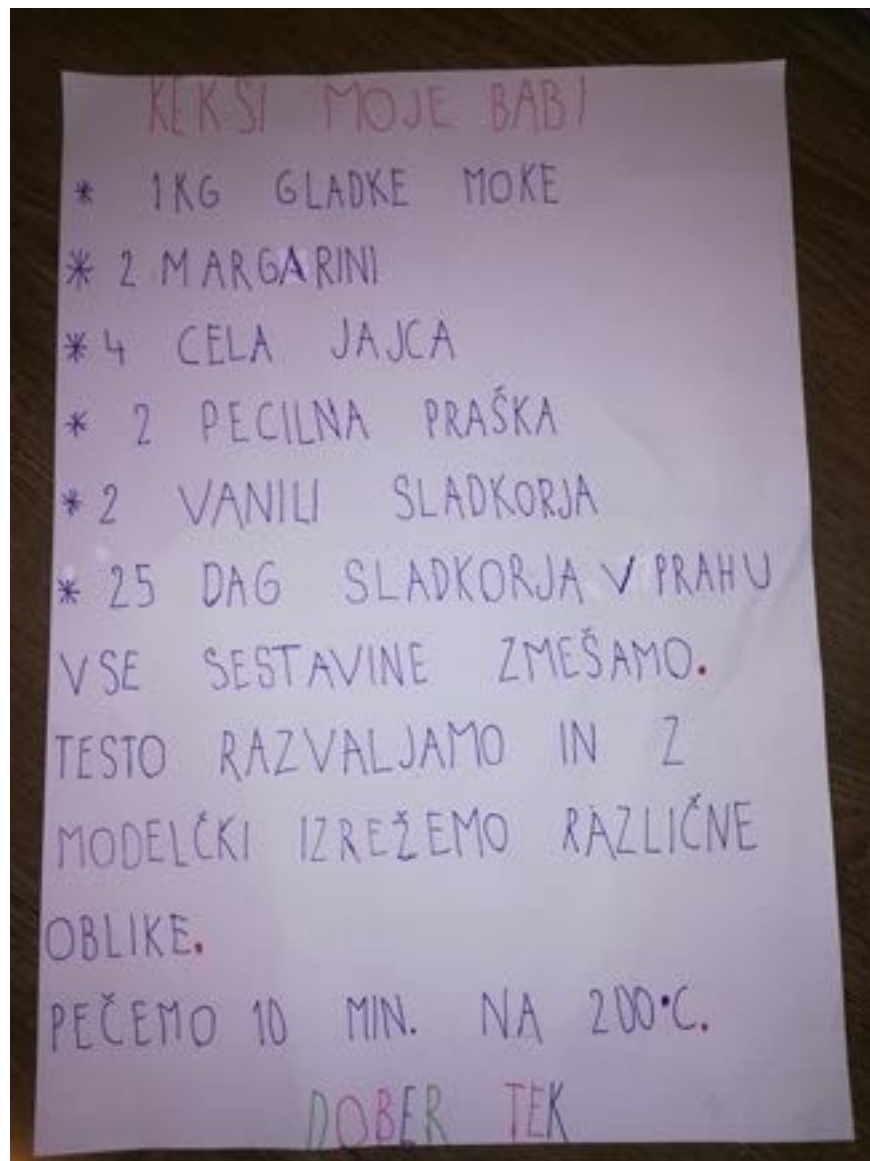 KEKSI MOJE BABI
* 1KG GLADKE MOKE
* 2 MARGARINI
* 4 CELA JAJCA
* 2 PECILNA PRAŠKA
* 2 VANILI SLADKORJA
* 25 DAG SLADKORJA V PRAHU
VSE SESTAVINE ZMEŠAMO.
TESTO RAZVALJAMO IN Z
MODELČKI IZREŽEMO RAZLIČNE
OBLIKE.
PEČEMO 10 MIN. NA 200°C.
DOBER TEK